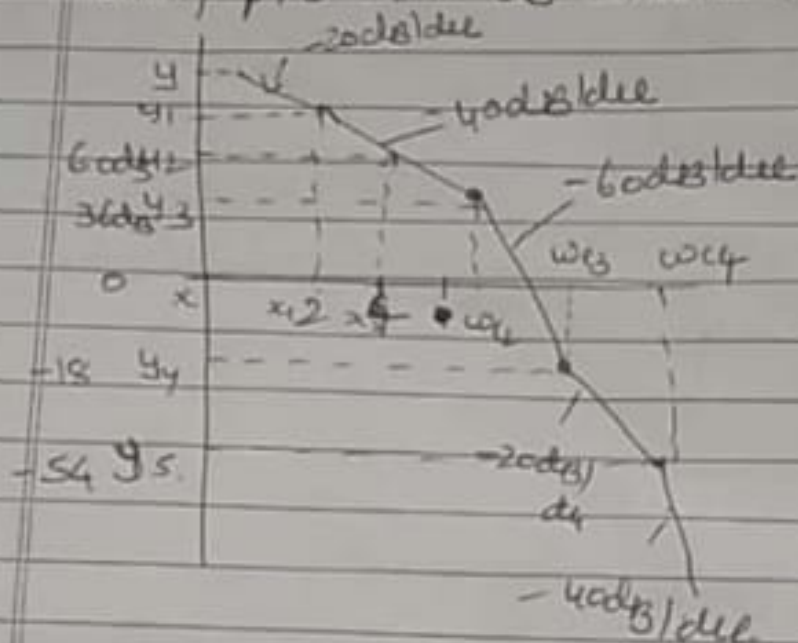 -20dB/dec
y
y1
-40dB/dec
60dB y2
-60dB/dec
36dB y3
ωc3 ωc4
0
x x1 2 x 4 ωc
-18 y4
-20dB/
-54 y5
-40dB/dec